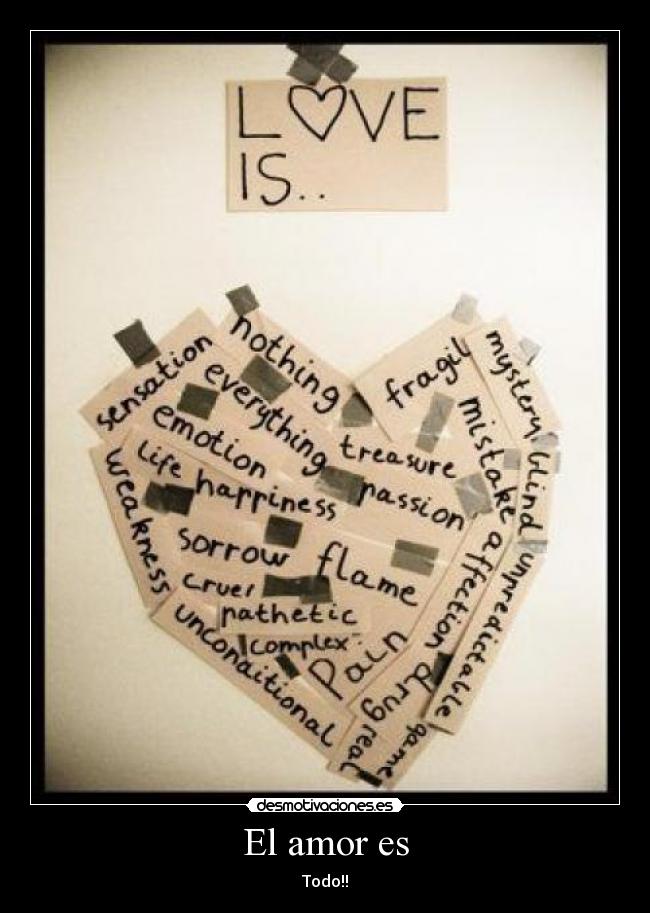 LOVE
IS..
nothing
sensation
everything
emotion
life
happiness
weakness
fragil
mystery
treasure
mistake
passion
blind
sorrow
flame
cruel
pathetic
complex
unconditional
pain
affection
unpredictable
drug
real
game
desmotivaciones.es
El amor es
Todo!!